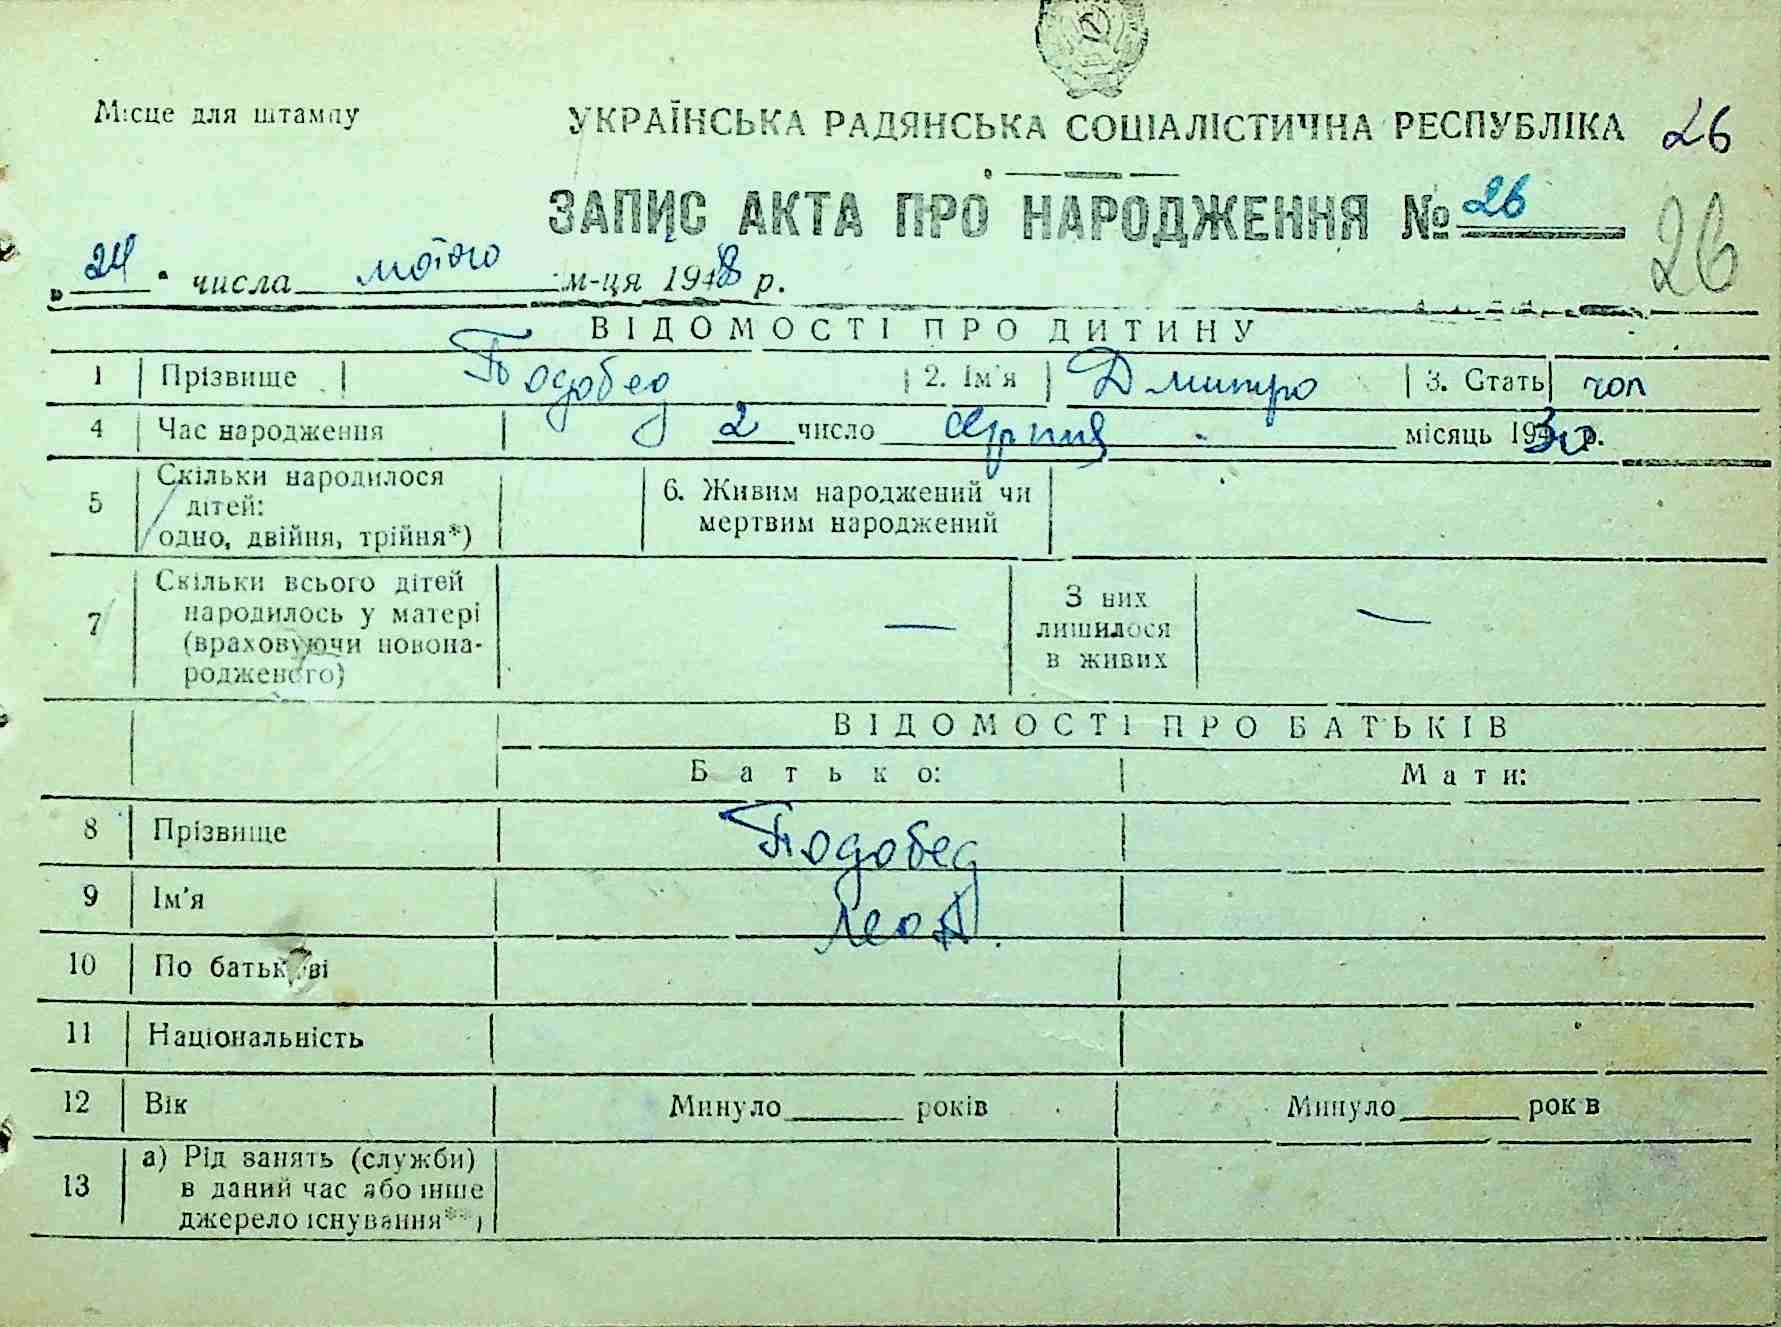 26
Місце для штампу
УКРАЇНСЬКА РАДЯНСЬКА СОЦІАЛІСТИЧНА РЕСПУБЛІКА
ЗАПИС АКТА ПРО НАРОДЖЕННЯ № 26
26
„24“ числа лютого м-ця 1948 р.
ВІДОМОСТІ ПРО ДИТИНУ
1 Прізвище Подобед 2. Ім'я Дмитро 3. Стать чол
4 Час народження 2 число серпня місяць 1930 р.
5 Скільки народилося дітей: одно, двійня, трійня*) 6. Живим народжений чи мертвим народжений
7 Скільки всього дітей народилось у матері (враховуючи новонародженого) — З них лишилося в живих —
ВІДОМОСТІ ПРО БАТЬКІВ
Батько: Мати:
8 Прізвище Подобед
9 Ім'я
10 По батькові
11 Національність
12 Вік Минуло років Минуло років
13 а) Рід занять (служби) в даний час або інше джерело існування**)